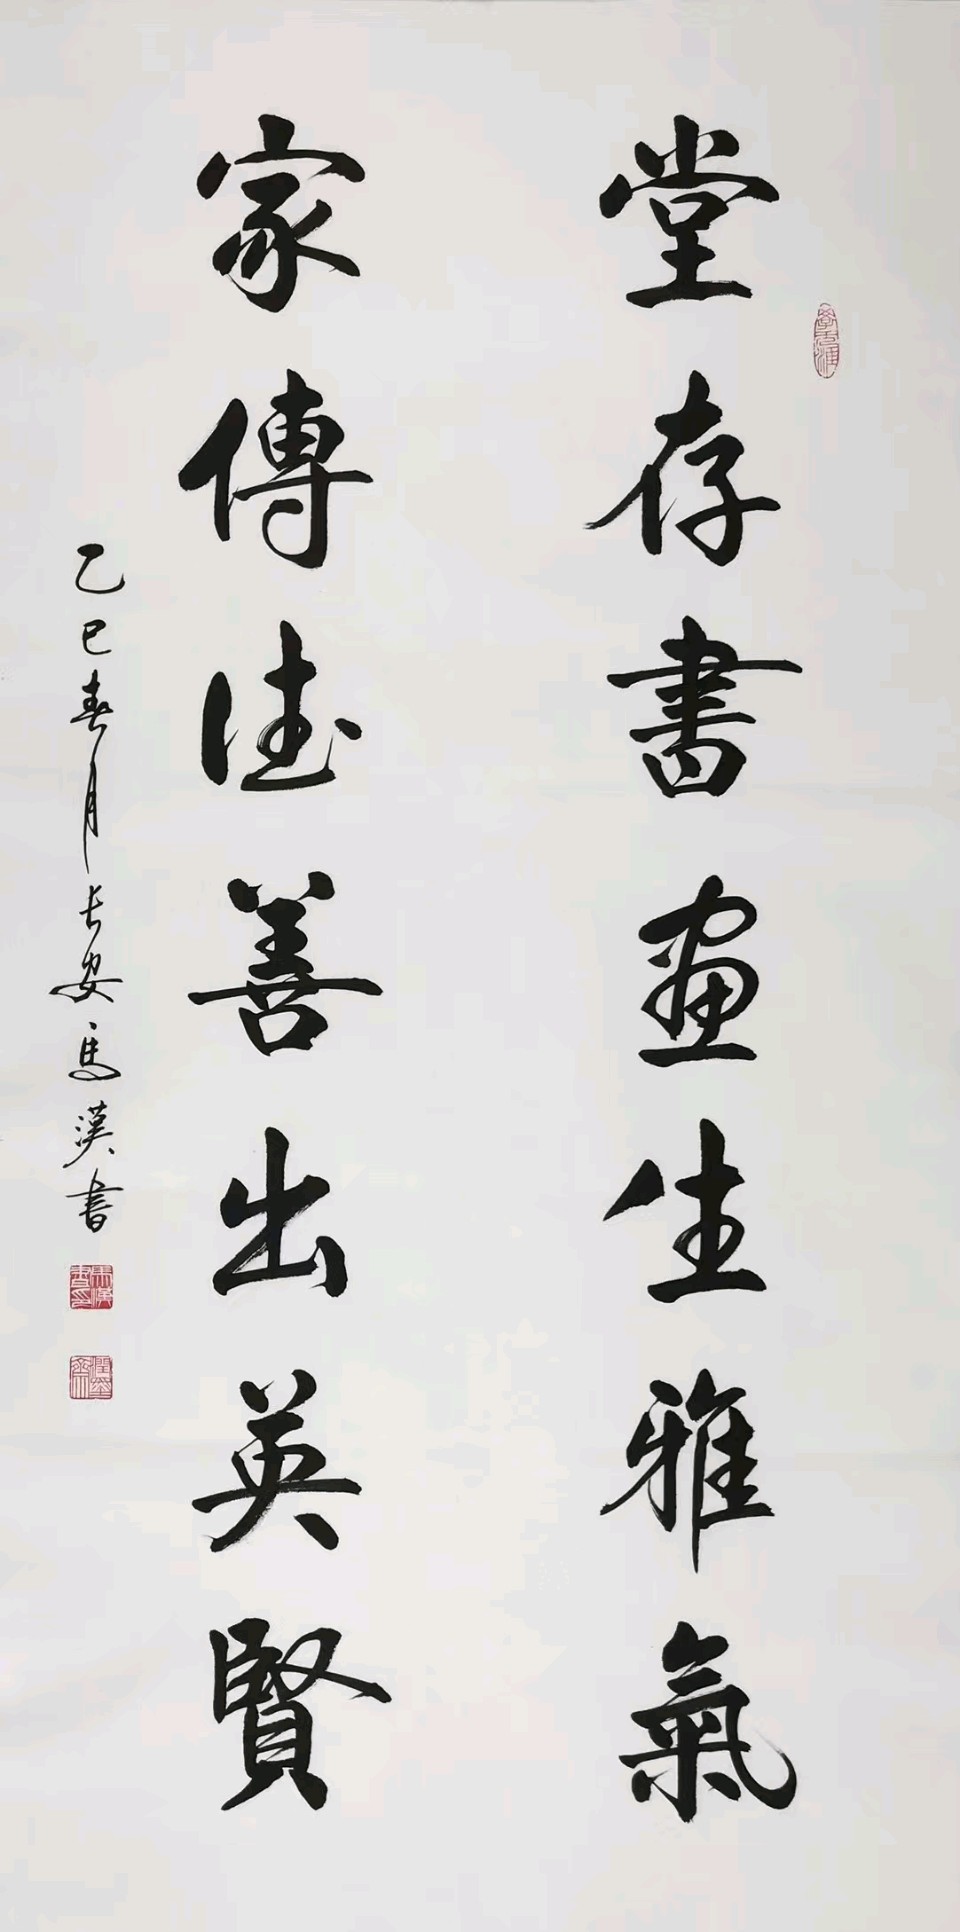 堂存書畫生雅氣
家傳德善出英賢
乙巳春月长安馬漢書